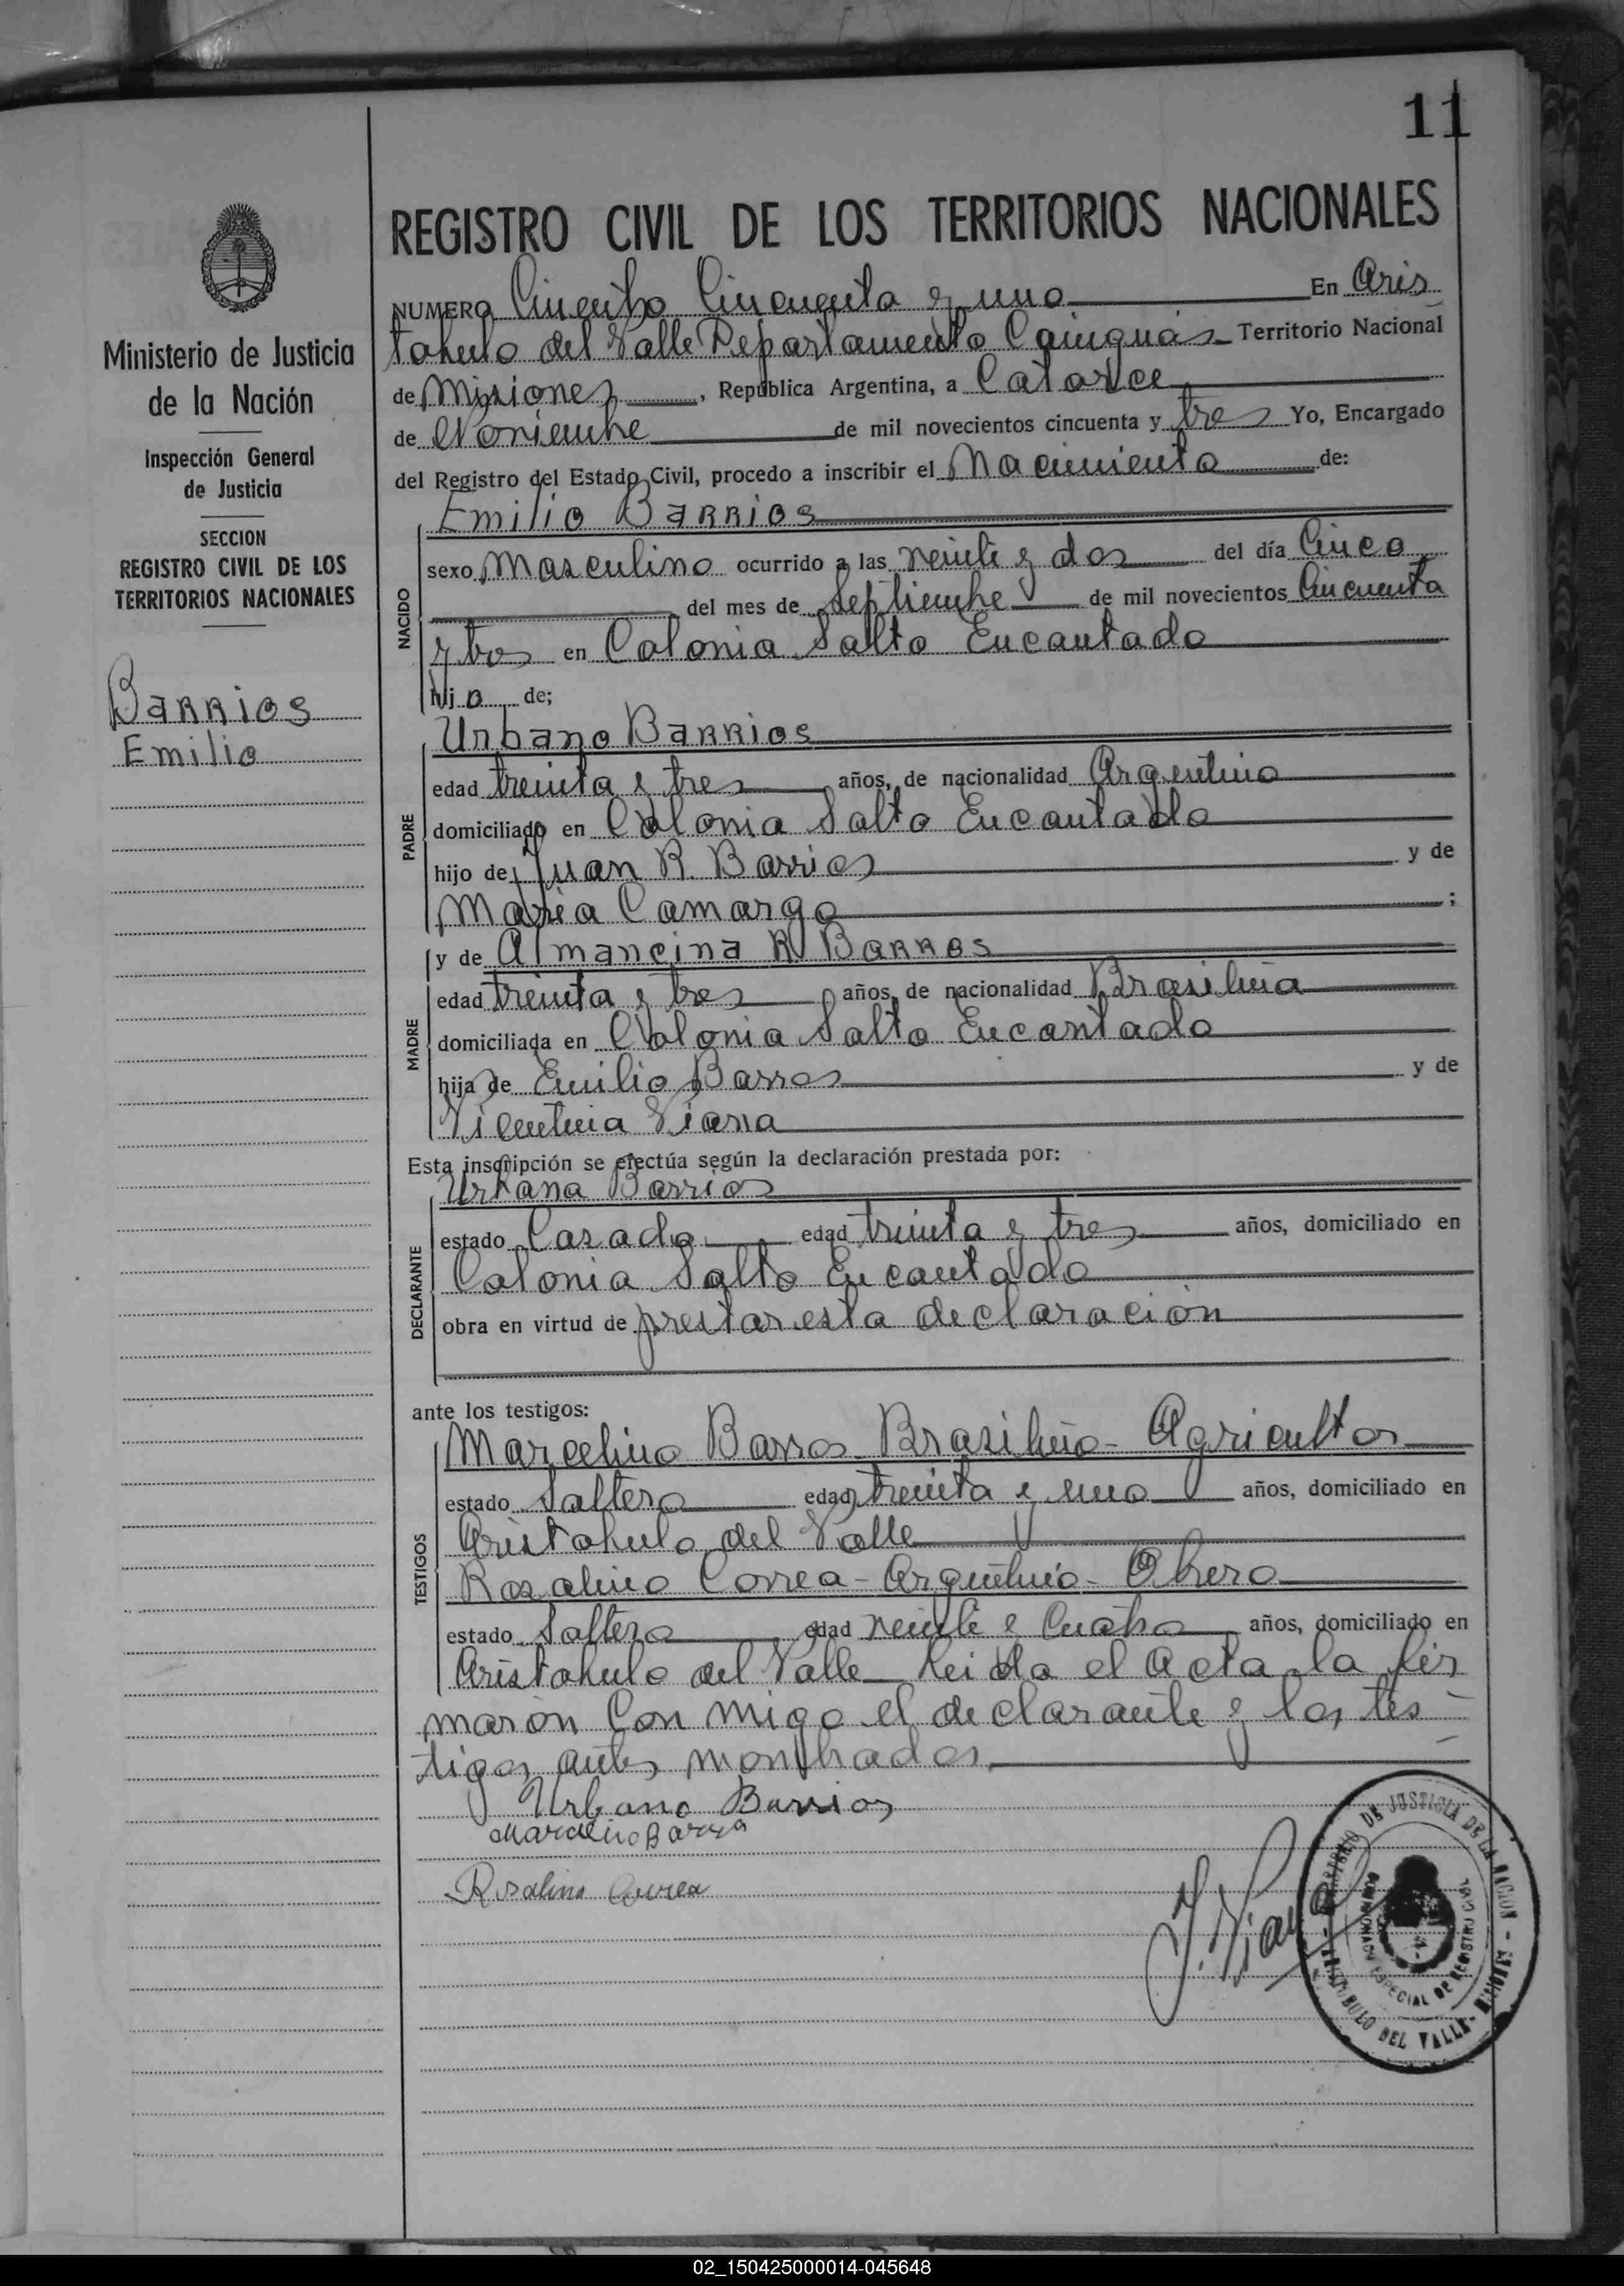 11
Ministerio de Justicia
de la Nación
Inspección General
de Justicia
SECCION
REGISTRO CIVIL DE LOS
TERRITORIOS NACIONALES
Barrios
Emilio
REGISTRO CIVIL DE LOS TERRITORIOS NACIONALES
NUMERO Cincuenta y uno En Aris
tobulo del Valle Departamento Cainguás Territorio Nacional
de Misiones, República Argentina, a Catorce
de Noviembre de mil novecientos cincuenta y tres Yo, Encargado
del Registro del Estado Civil, procedo a inscribir el Nacimiento de:
Emilio Barrios
NACIDO
sexo Masculino ocurrido a las veinte y dos del día Cinco
del mes de Septiembre de mil novecientos Cincuenta
y tres en Colonia Salto Encantado
hijo de;
Urbano Barrios
PADRE
edad treinta y tres años, de nacionalidad Argentino
domiciliado en Colonia Salto Encantado
hijo de Juan R. Barrios y de
Maria Camargo ;
y de Almancina R Barros
MADRE
edad treinta y tres años, de nacionalidad Brasilina
domiciliada en Colonia Salto Encantado
hija de Emilio Barros y de
Vicentina Viana
Esta inscripción se efectúa según la declaración prestada por:
Urbano Barrios
DECLARANTE
estado Casado edad treinta y tres años, domiciliado en
Colonia Salto Encantado
obra en virtud de prestar esta declaración
ante los testigos:
Marcelino Barros Brasilino - Agricultor
TESTIGOS
estado Soltero edad treinta y uno años, domiciliado en
Aristobulo del Valle
Rosalino Correa - Argentino - Obrero
estado Soltero edad veinte y Cuatro años, domiciliado en
Aristobulo del Valle Leida el Acta la fir
maron Con migo el declarante y los tes-
tigos antes
Urbano Barrios
Marcelino Barros
Rosalino Correa
J. Viana
MINISTERIO DE JUSTICIA DE LA NACION - MISIONES
ARISTOBULO DEL VALLE
ESPECIAL DE REGISTRO CIVIL
02_150425000014-045648